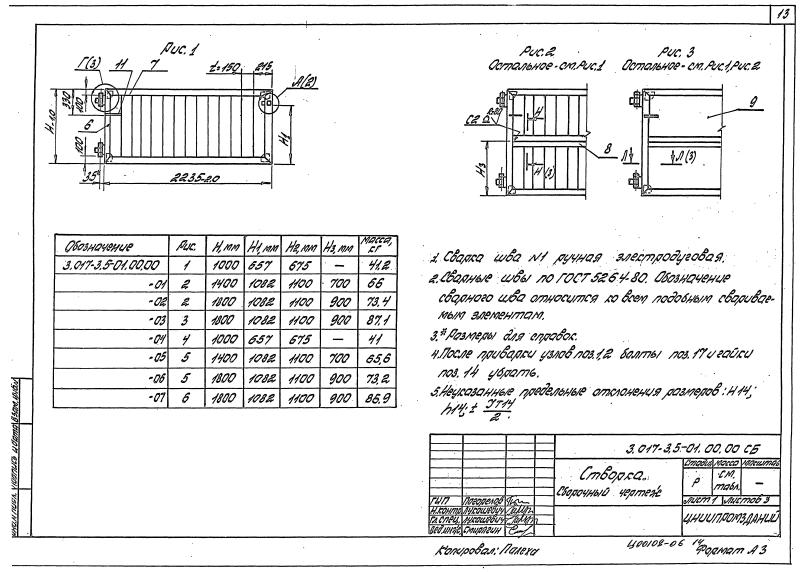 13
Рис. 1
Рис. 2
Остальное - см. Рис. 1
Рис. 3
Остальное - см. Рис. 1, Рис. 2
Г(3)
11
7
t=150
215
Л(2)
330
100
6
H±10
H1
100
35*
2235-2.0
С2
Н
Н (3)
8
H3
9
Л
Л (3)
Обозначение Рис. H, мм H1, мм H2, мм H3, мм Масса, кг
3.017-3.5-01.00.00 1 1000 657 675 — 41,2
-01 2 1400 1082 1100 700 66
-02 2 1800 1082 1100 900 73,4
-03 3 1800 1082 1100 900 87,1
-04 4 1000 657 675 — 41
-05 5 1400 1082 1100 700 65,6
-06 5 1800 1082 1100 900 73,2
-07 6 1800 1082 1100 900 86,9
1. Сварка шва №1 ручная электродуговая.
2. Сварные швы по ГОСТ 5264-80. Обозначение
сварного шва относится ко всем подобным сваривае-
мым элементам.
3.* Размеры для справок.
4. После приварки узлов поз. 1,2 болты поз. 17 и гайки
поз. 14 убрать.
5. Неуказанные предельные отклонения размеров: H14;
h14; ± IT14/2.
3.017-3.5-01.00.00 СБ
Створка.
Сборочный чертеж
Стадия Масса Масштаб
Р см. табл. —
Лист 1 Листов 3
ЦНИИПРОМЗДАНИЙ
ГИП
Н.контр. Лукашевич
Гл.спец. Лукашевич
Вед.инж. Смирягин
Инв.№ подл. Подпись и дата Взам.инв.№
Копировал:
Ц00108-06 14
Формат А3